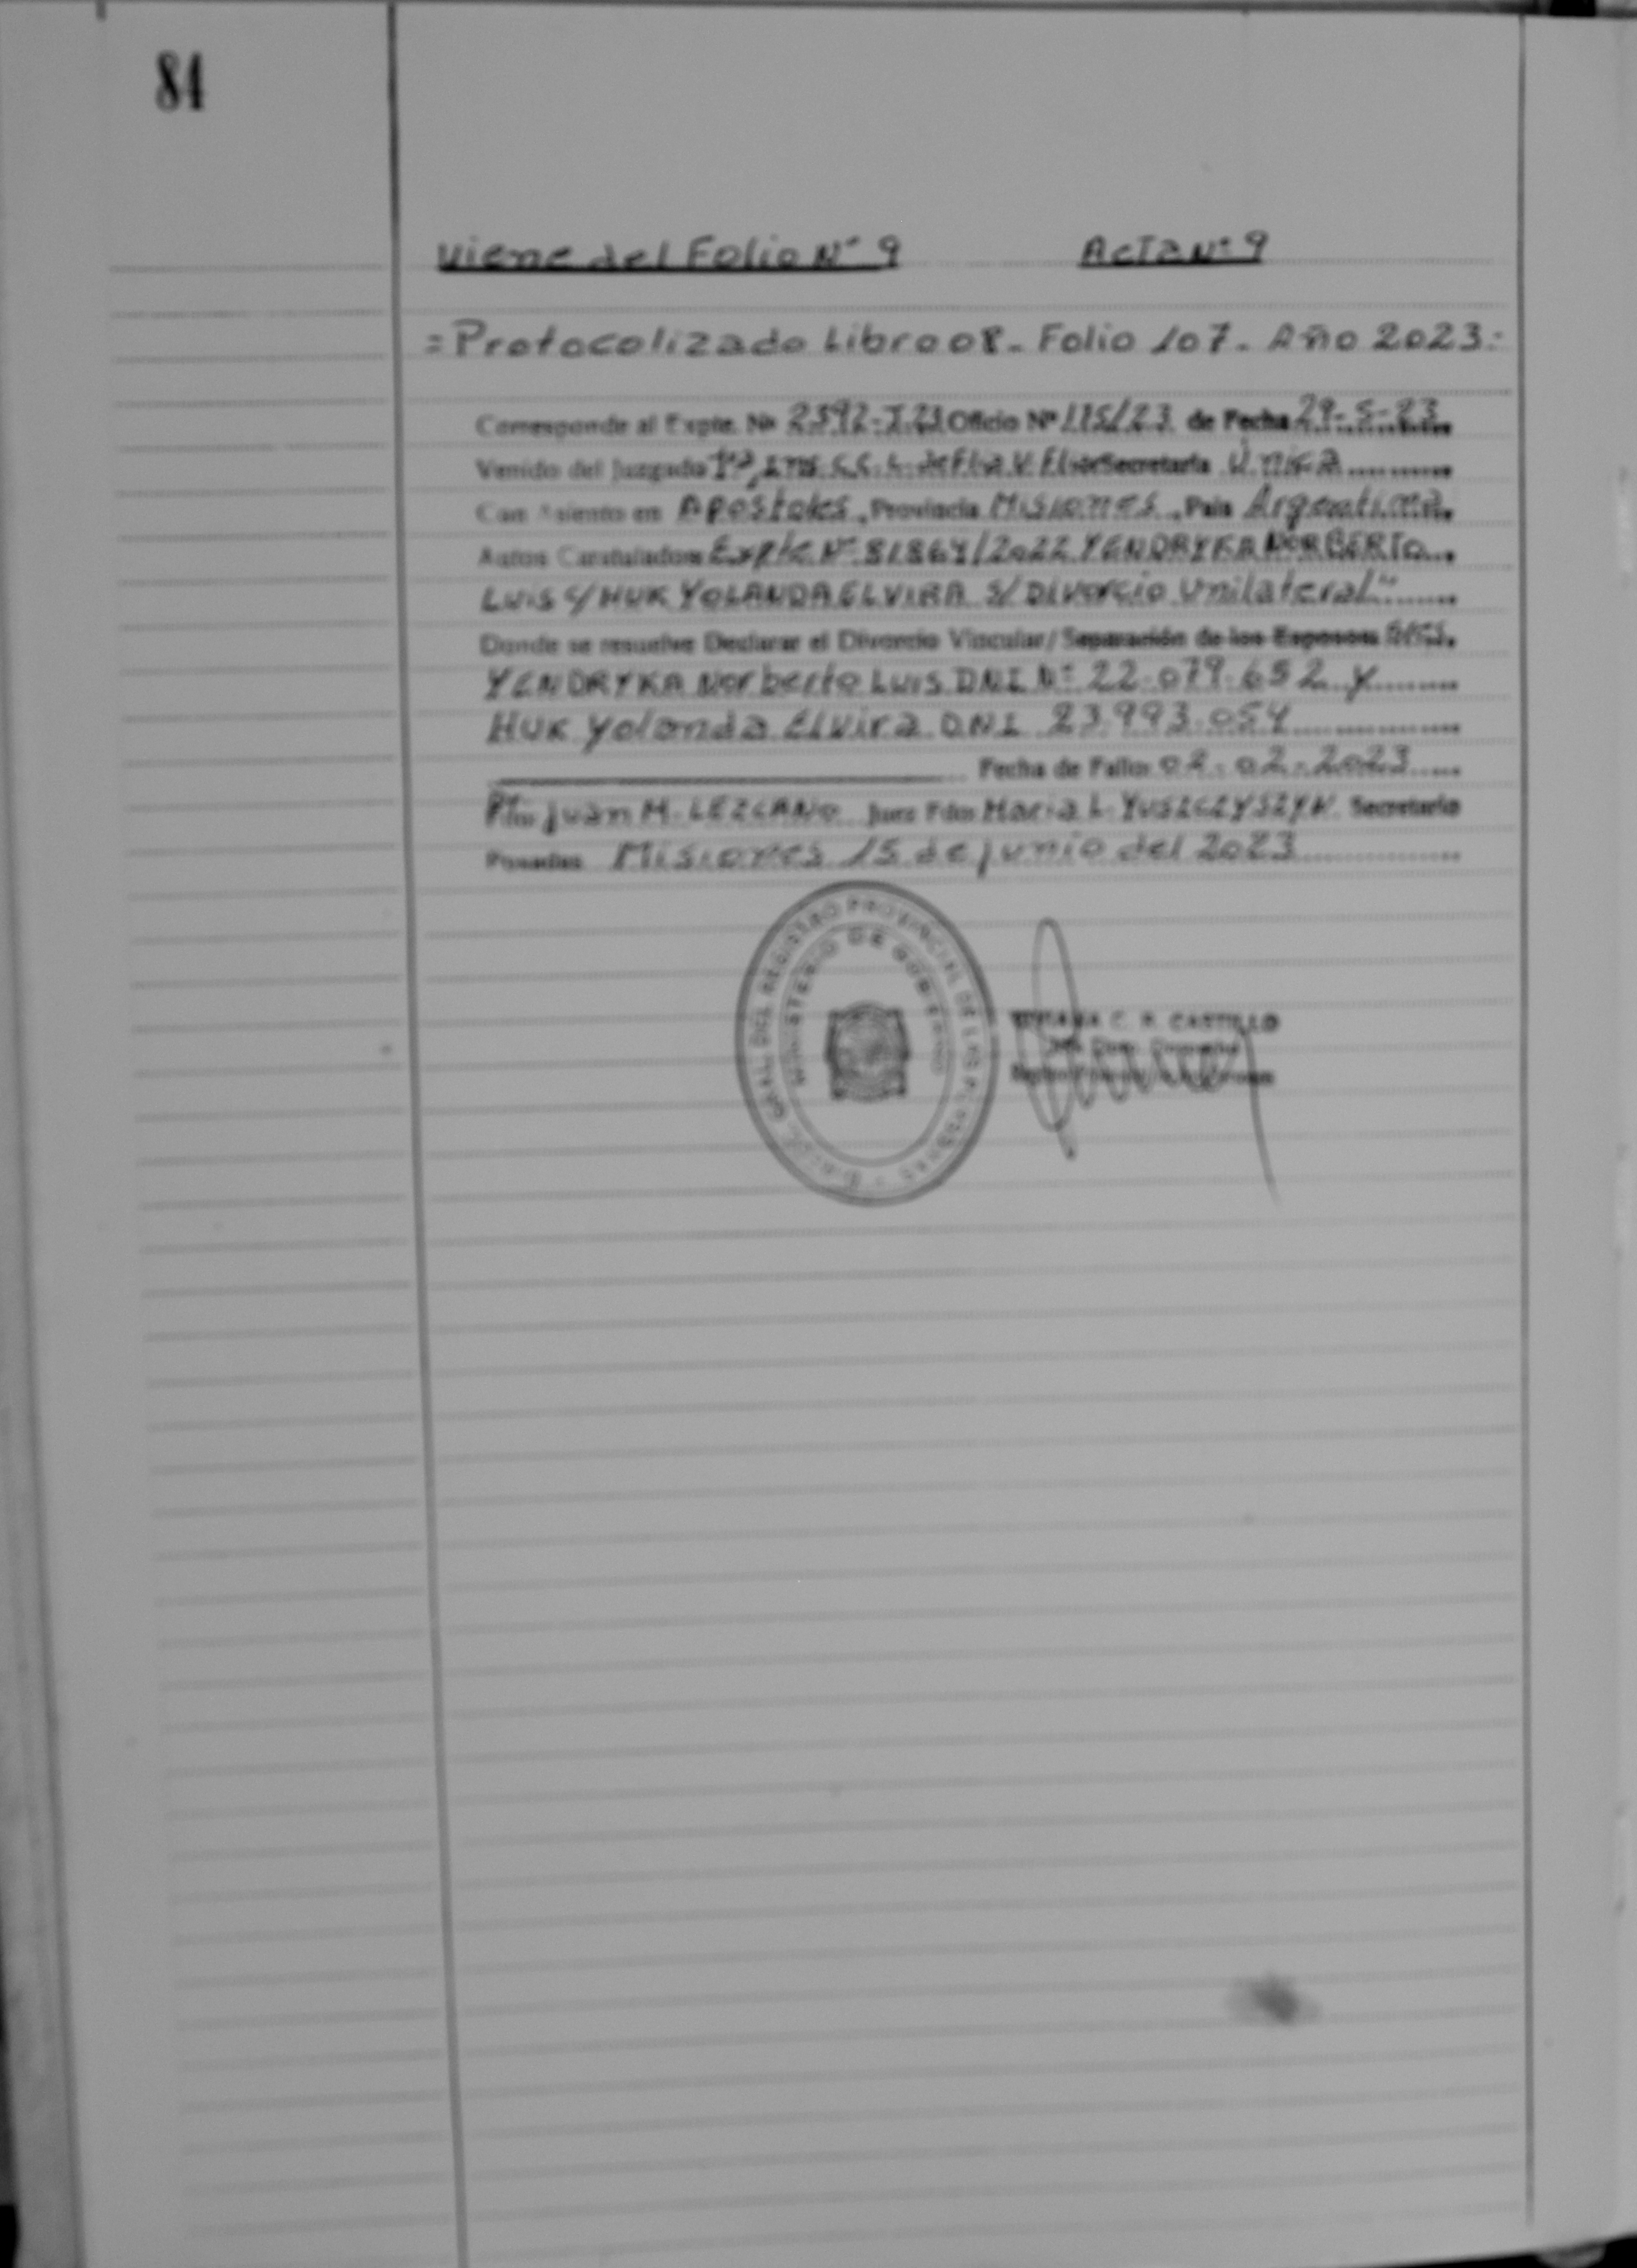 84
Viene del Folio N° 9 Acta N° 9
= Protocolizado Libro 08 - Folio 107 - Año 2023 =
Corresponde al Expte. Nº 2592-J-23 Oficio Nº 175/23 de Fecha 29-5-23
Venido del Juzgado 1ra Ins. C.C.L. de Flia. V. Flia Secretaría Única
Con Asiento en Apostoles, Provincia Misiones, País Argentina.
Autos Caratulados Expte N° 81864/2022 YENDRYKA NORBERTO
LUIS C/ HUK YOLANDA ELVIRA S/ Divorcio Unilateral"
Donde se resuelve Declarar el Divorcio Vincular/Separación de los Esposos
YENDRYKA Norberto Luis DNI N° 22.079.652 y
HUK Yolanda Elvira DNI 23.993.054
Fecha de Fallo: 02-02-2023
Juan M. LEZCANO Juez Fdo: Maria L. YUSZCZYSZYN Secretario
Posadas Misiones 15 de junio del 2023
DIRECC. GRAL. DEL REGISTRO PROVINCIAL DE LAS PERSONAS
MINISTERIO DE GOBIERNO
C. R. CASTILLO